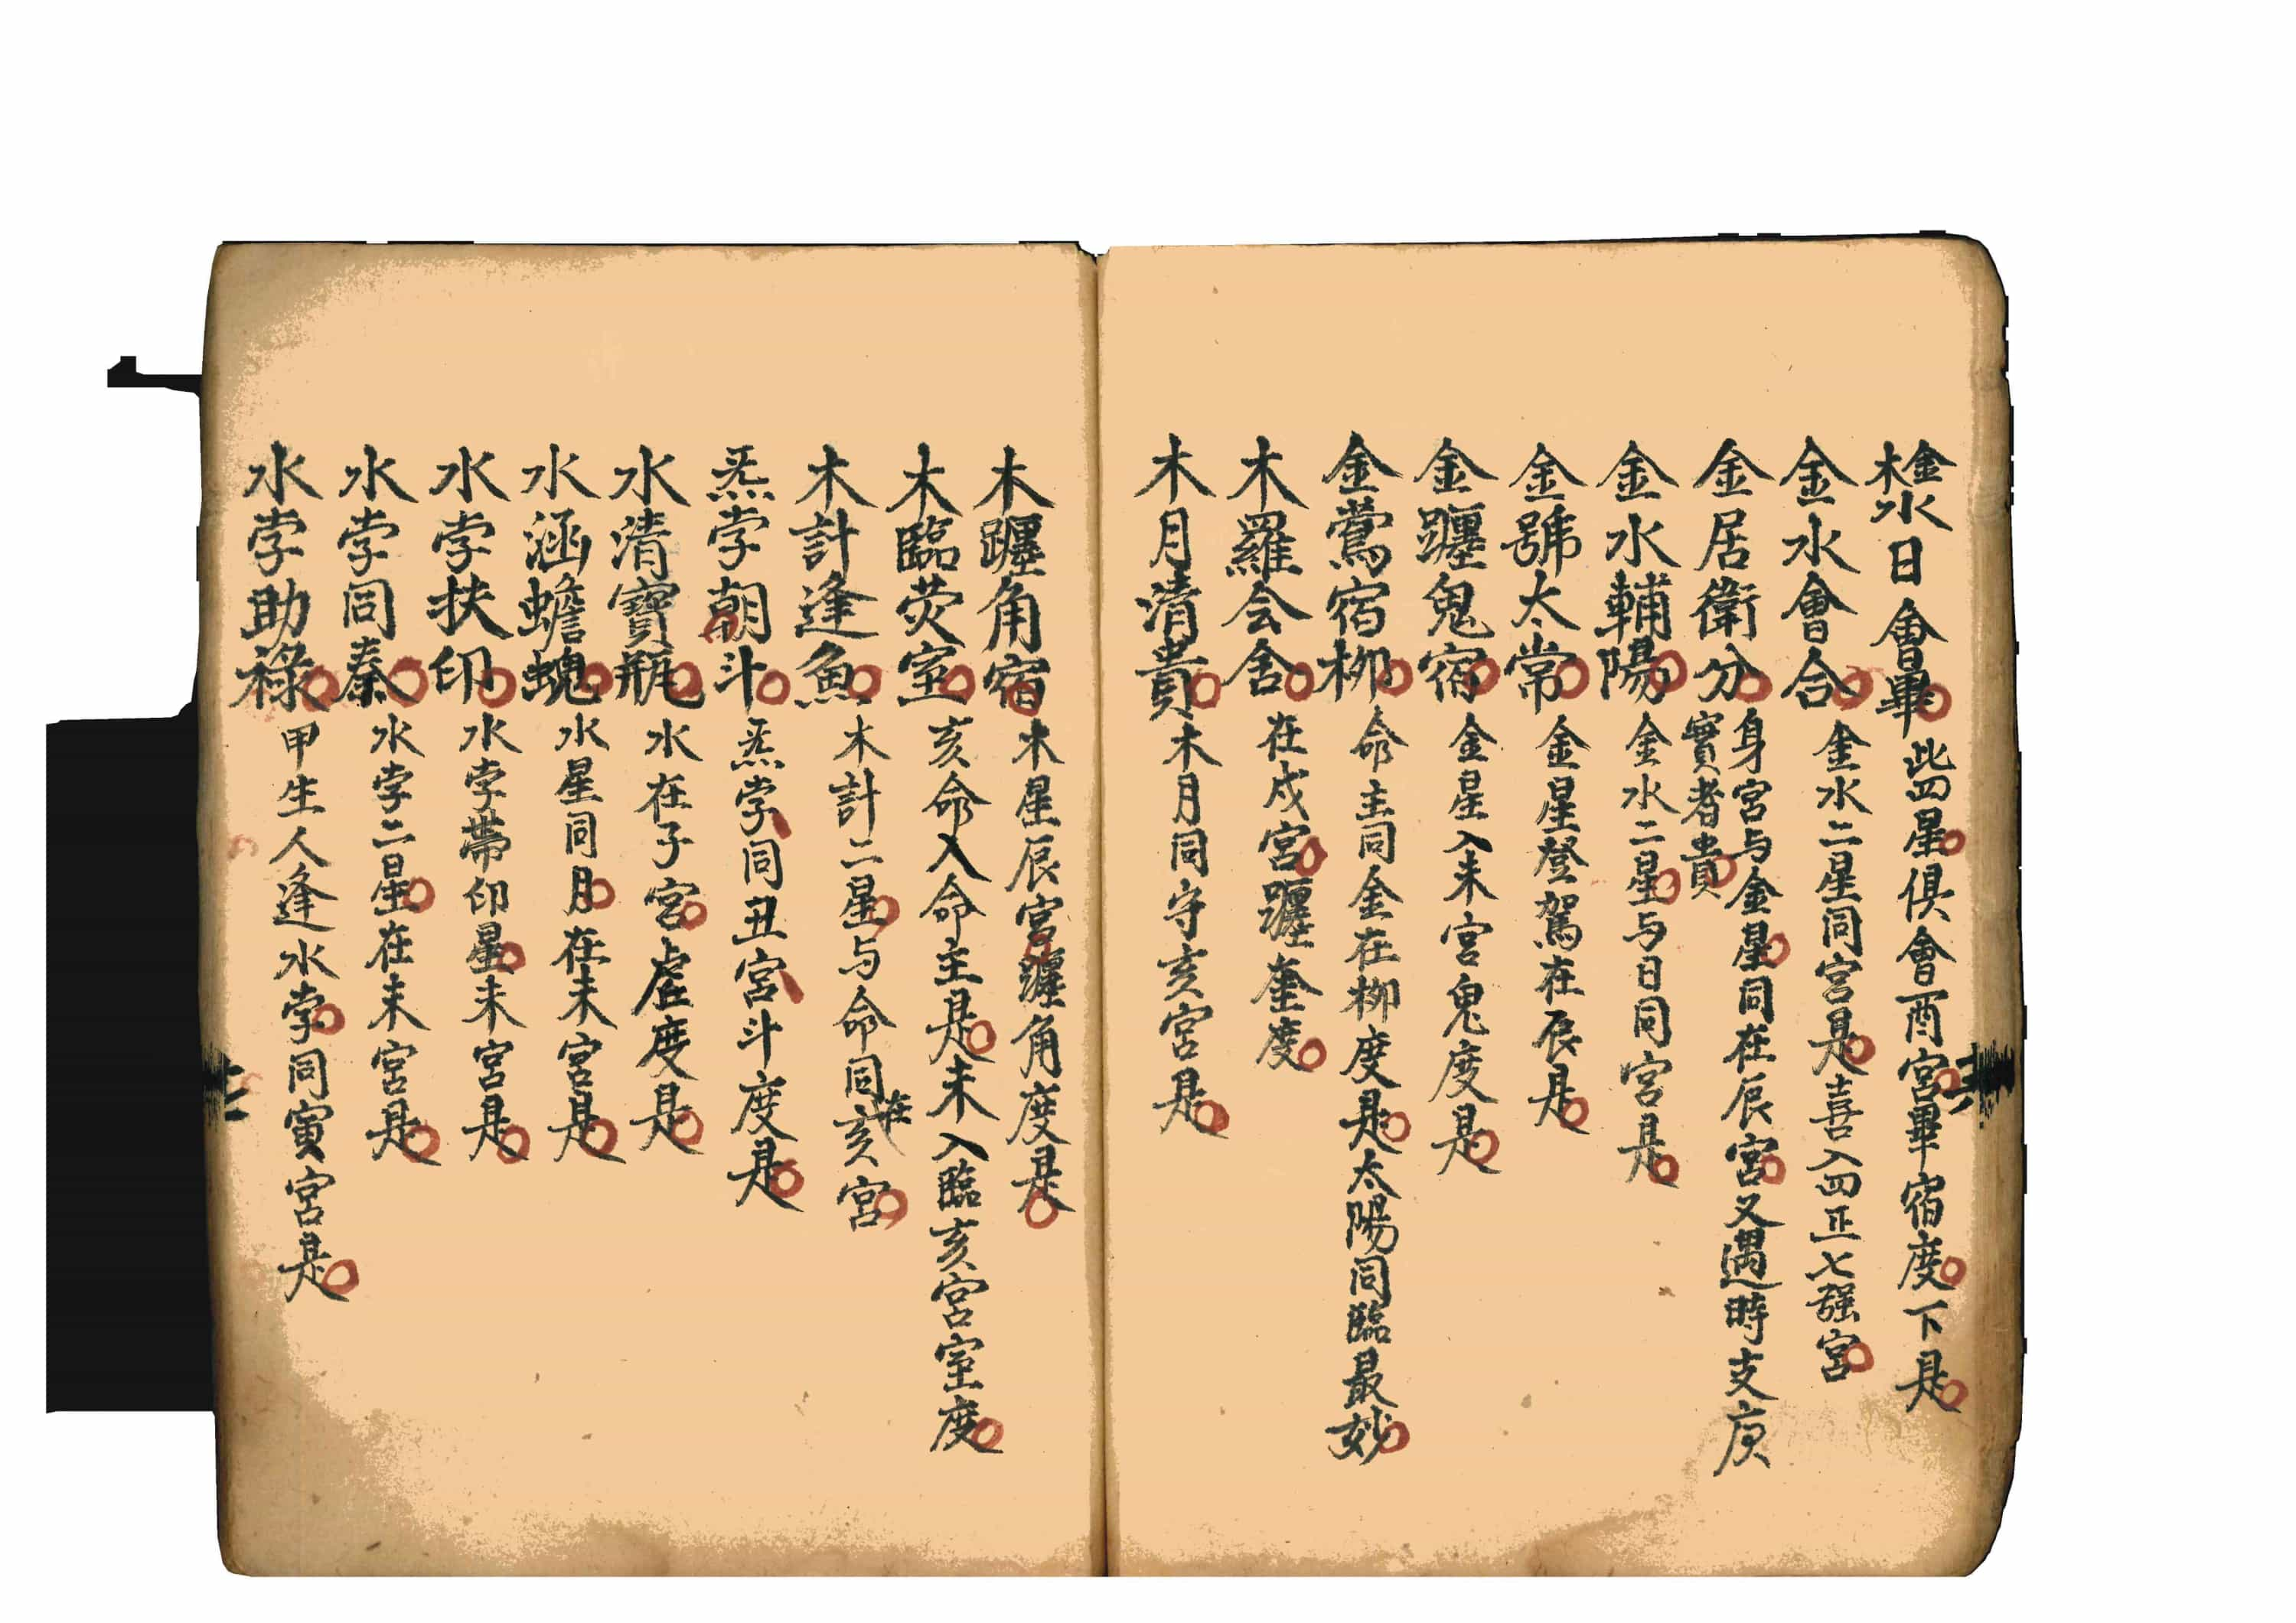 金木水日會畢 此四星俱會酉宮畢宿度下是
金水會合 金水二星同宮是喜入四正七强宮
金居衛分 身宮与金星同在辰宮又遇時支庚
實者貴
金水輔陽 金水二星与日同宮是
金號太常 金星登駕在辰是
金躔鬼宿 金星入未宮鬼度是
金鶯宿柳 命主同金在柳度是太陽同臨最妙
木羅会舍 在戌宮躔奎度
木月清貴 木月同守亥宮是
木躔角宿 木星辰宮躔角度是
木臨荧室 亥命入命主是未入臨亥宮室度
木計逢魚 木計二星与命同在亥宮
炁孛朝斗 炁孛同丑宮斗度是
水清寶瓶 水在子宮虛度是
水涵蟾螝 水星同月在未宮是
水孛扶印 水孛帶印星未宮是
水孛同秦 水孛二星在未宮是
水孛助祿 甲生人逢水孛同寅宮是